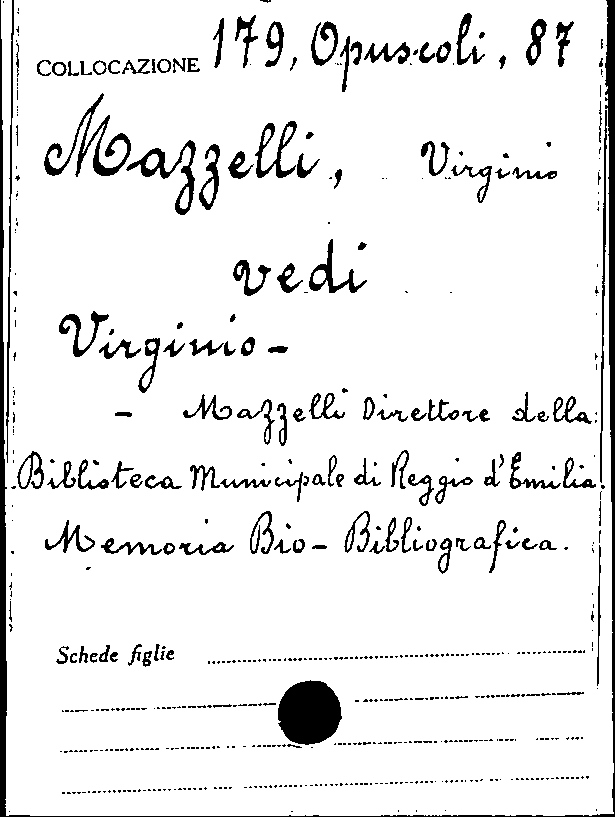 COLLOCAZIONE 179, Opuscoli, 87
Mazzelli, Virginio
vedi
Virginio-
- Mazzelli Direttore della
Biblioteca Municipale di Reggio d'Emilia.
Memoria Bio-Bibliografica.
Schede figlie